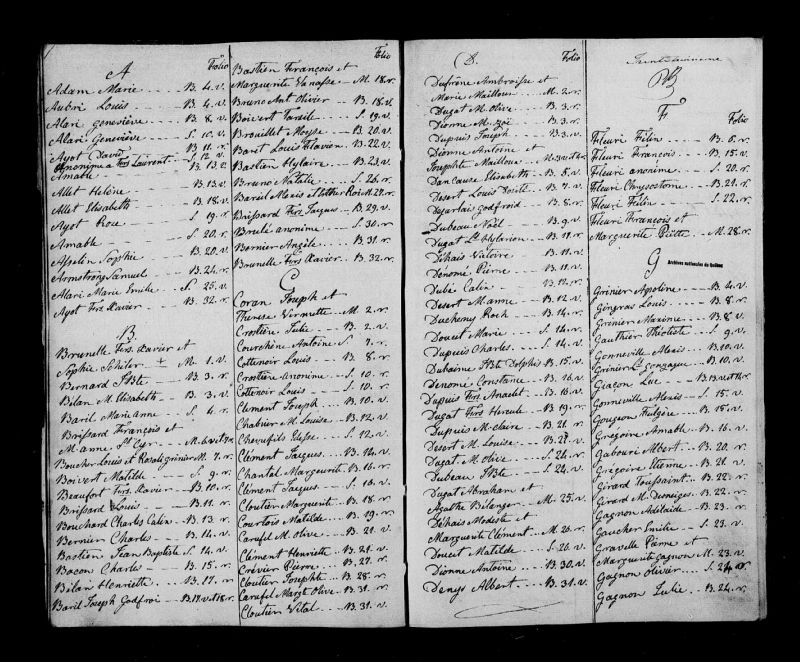 A
Folio
Adam Marie B. 4. v.
Aubri Louis B. 4. v.
Alari Geneviève B. 8 v.
Alari Geneviève S. 10. v.
Ayot David B. 11. r.
Anonime a frs Laurent S. 12 v.
Amable B. 13 2.
Allet Helène B. 13. v.
Allet Elisabeth B. 18. v.
Ayot Rose S. 19. v.
Amable S. 20. r.
Asselin Sophie B. 20. v.
Armstrong Samuel B. 24. r.
Alari Marie Emilie S. 25. v.
Ayot frs Xavier B. 32. r.
B
Brunelle frs. Xavier et
Sophie Schiler M. 1. v.
Bernard JBte B. 3. r.
Belan M. Elisabeth B. 3. v.
Baril Marianne S. 4. r.
Brissard François et
M. anne St Cyr
Boucher Louis et Rosali grinier M. 7. r.
Boivert Matilde S. 9. r.
Beaufort frs. Xavier B. 10. r.
Brissard Louis B. 11. r.
Bouchard Charles Calin B. 13. r.
Bernier Charles B. 14. v.
Bastien Jean Baptiste S. 14. v.
Bacon Charles B. 15. r.
Bilan Henriette B. 17. r.
Baril Joseph Godfroi B. 17. v. 18. r.
Folio
Bastien François et
Marguerite Vanasse M. 18. r.
Bruno Ant Olivier B. 18. v.
Boivert Tarsile S. 19. v.
Brouillet Moyse B. 20. v.
Baret Louis Flavien B. 22. v.
Bastien Hylaire B. 23. v.
Bruno Natalie S. 26. r.
Baril Alexis et Esther Roich 29. r.
Brissard frs. Jaques B. 29. v.
Brulé anonime S. 30. r.
Bornier Angèle B. 31. r.
Brunelle frs Xavier B. 32. r.
C
Coran Joseph et
Therese Vermette M. 2. r.
Crostière Julie B. 2. v.
Courchène Antoine S. 7. r.
Cottenoir Louis B. 8. r.
Crostière anonime S. 10. r.
Cottenoir Louis S. 10. r.
Clement Joseph B. 10. v.
Chabier M. Louise B. 12. v.
Chevrefils Elisse S. 12. v.
Clément Jaques B. 14. v.
Chantal Marguerite B. 16. r.
Clément Jaques S. 16. v.
Cloutier Marguerite B. 18. r.
Courtois Matilde B. 19. r.
Carufel M. Olive B. 21. v.
Clément Henriette B. 21. v.
Crévier Pierre B. 27. r.
Cloutier Josephte B. 28. r.
Carufel Margt Olive B. 31. r.
Cloutier Vital B. 31. v.
D.
Folio
Dufrêne Ambroisse et
Marie Mailloux M. 2. r.
Dugat M. Olive B. 3. r.
Dionne M. Zoé B. 3. r.
Dupuis Joseph B. 3. v.
Dionne Antoine et
Josephte Mailloux M. 3. v. et 4. r.
Dan Cause Elisabeth B. 5. v.
Desert Louis Dosité B. 7. v.
Dejarlais Godfroid B. 8. r.
Dubeau Noël B. 9. v.
Dugat Ls Hylarion B. 11. r.
Déhais Victoire B. 11. v.
Denomé Pierre B. 11. v.
Dubé Calin B. 12. r.
Desert M. anne B. 12. v
Duchemy Roch B. 14. r.
Doucet Marie S. 14. r.
Dupuis Charles S. 14. v.
Dubaine JBte Dolphis B. 15. v.
Denome Constance B. 16. v.
Dupuis frs Anaclet B. 16. v.
Dugat frs Hercule B. 19. r.
Dupuis M. claire B. 21. r
Desert M. Louise B. 21. v.
Dugat M. Olive S. 24. r.
Dubeau JBte S. 24. v.
Dugat Abraham et
Agathe Bélanger M. 25. v.
Déhais Modeste et
Marguerite Clément M. 26. r.
Doucet Matilde S. 26. v.
Dionne Antoine B. 30. v.
Denys Albert B. 31. v.
F
Folio
Fleuri Félin B. 6. r.
Fleuri François B. 15. v.
Fleuri anonime S. 20. r.
Fleuri Chrysostome B. 21. r.
Fleuri Félin S. 22. r.
Fleuri François et
Marguerite Piette M. 28. r.
G
Archives nationales du Québec
Grinier Apoline B. 4. v.
Gingras Louis B. 8. r.
Grinier Maxime B. 8. v
Gauthier Théotiste S. 9. v.
Gonneville Alexis B. 10. v.
Grinier Ls gonzague B. 10. v.
Giason Luc B. 13. v. et 14. r.
Gonneville Alexis S. 15. v.
Gougeon Fulgère B. 15. v.
Grégoire Amable B. 16. v.
Gabouri Albert B. 20. r.
Grégoire Etienne B. 21. v.
Girard Toussaint B. 22. r
Girard M. Deneiges B. 22. r.
Gagnon Adélaïde B. 23. r.
Gaucher Emilie S. 23. v.
Gravelle Pierre et
Marguerite Gagnon M. 23. v.
Gagnon Olivier S. 24. r
Gagnon Julie B. 24. r.